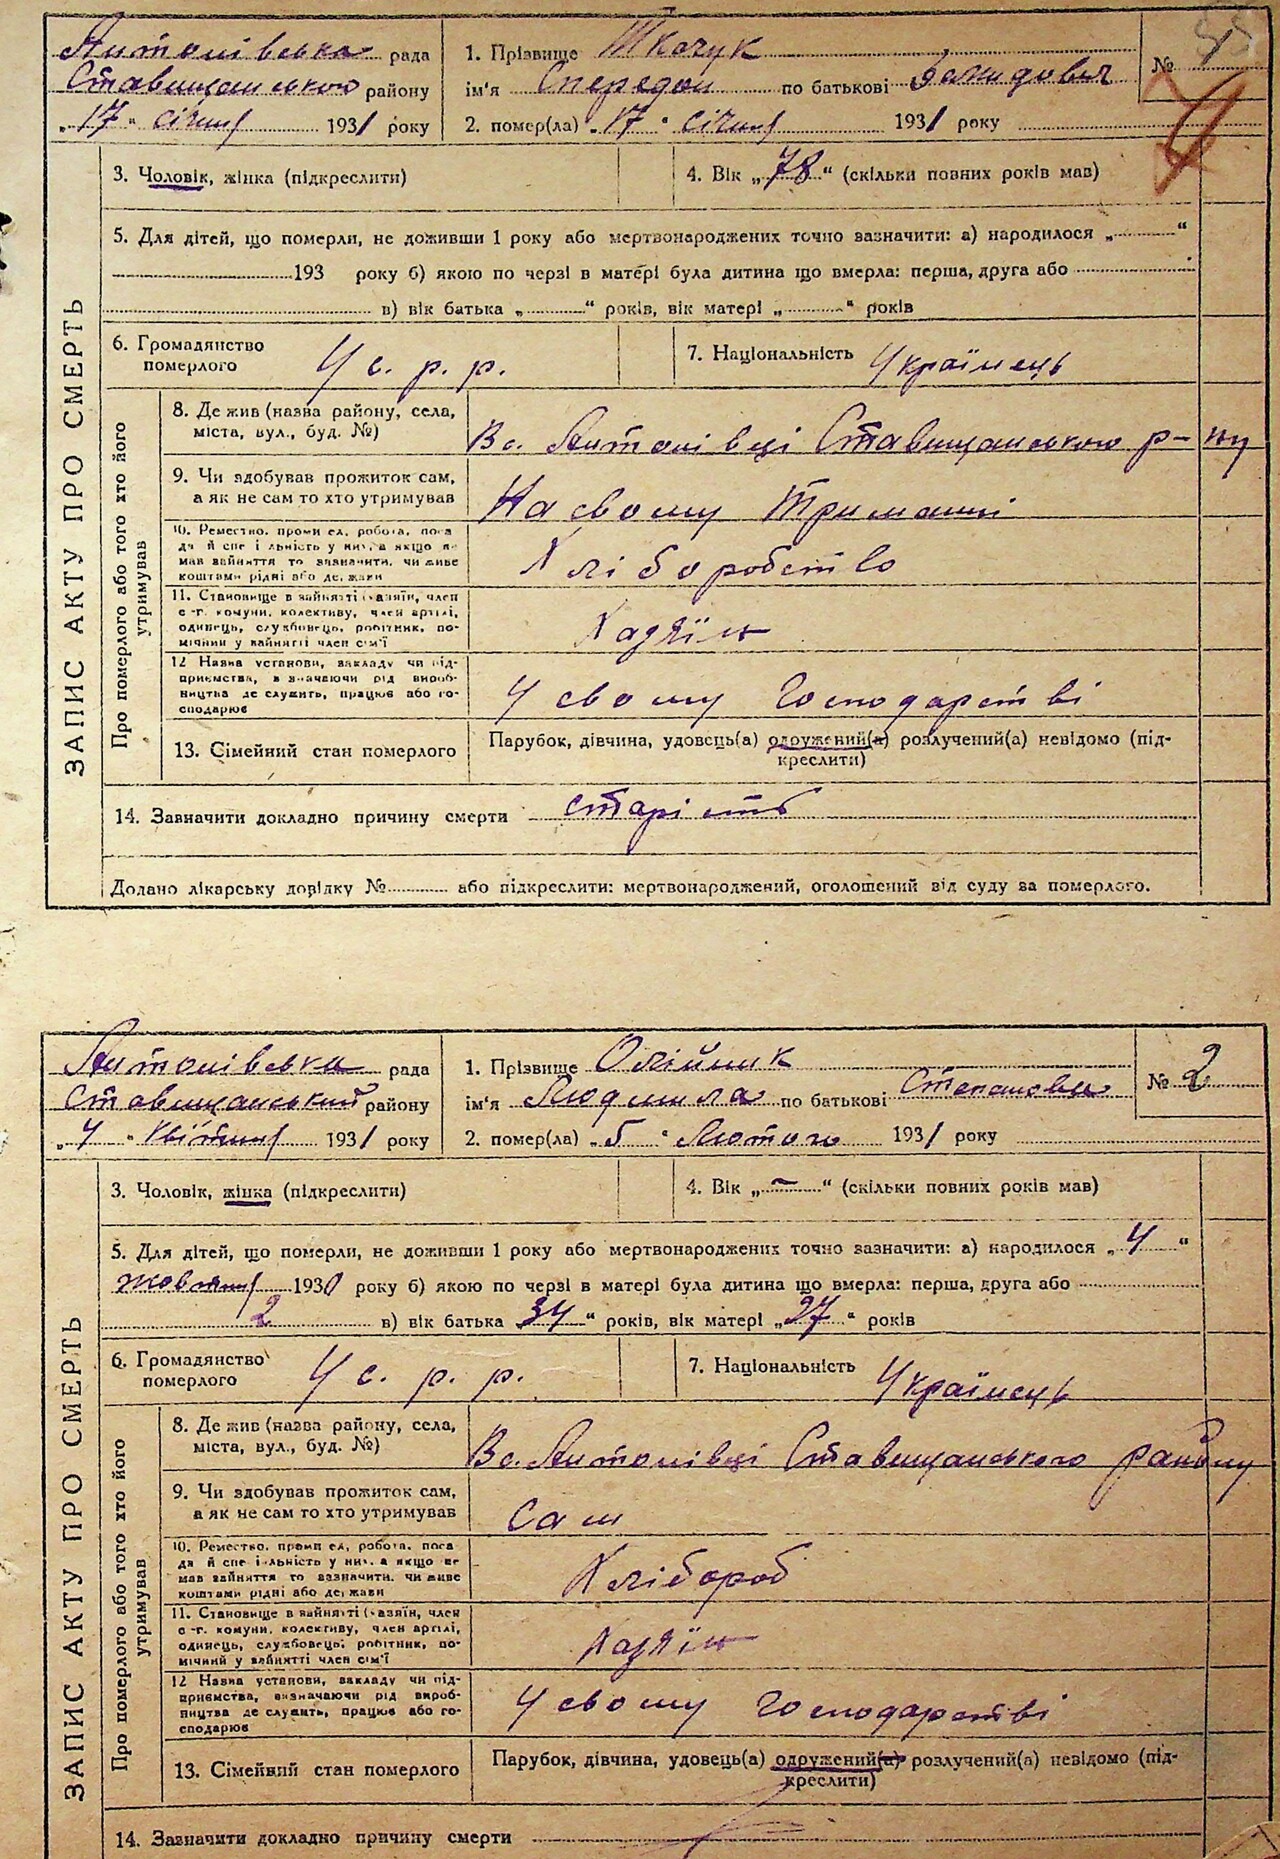 Антонівська рада
Ставищанського району
„17“ січня 1931 року
1. Прізвище Ткачук
ім'я Спередон по батькові
2. помер(ла) „17“ січня 1931 року
№ 1
3. Чоловік, жінка (підкреслити)
4. Вік „78“ (скільки повних років мав)
5. Для дітей, що померли, не доживши 1 року або мертвонароджених точно зазначити: а) народилося „ “
193 року б) якою по черзі в матері була дитина що вмерла: перша, друга або
в) вік батька „ “ років, вік матері „ “ років
6. Громадянство
померлого У с. р. р.
7. Національність Українець
ЗАПИС АКТУ ПРО СМЕРТЬ
Про померлого або того хто його
утримував
8. Де жив (назва району, села,
міста, вул., буд. №)
В с. Антонівці Ставищанського р-ну
9. Чи здобував прожиток сам,
а як не сам то хто утримував
На свому триманні
10. Ремество, промисел, робота, поса
да й спеціяльність у них, а якщо не
мав зайняття то зазначити, чи живе
коштами рідні або держави
Хліборобство
11. Становище в зайнятті (хазяїн, член
с-г. комуни, колективу, член артілі,
одинець, службовець, робітник, по-
мічний у зайнятті член сім'ї
Хазяїн
12 Назва установи, закладу чи під-
приємства, зазначаючи рід вироб-
ництва де служить, працює або го-
сподарює
У свому господарстві
13. Сімейний стан померлого
Парубок, дівчина, удовець(а) одружений(а) розлучений(а) невідомо (під-
креслити)
14. Зазначити докладно причину смерти старість
Додано лікарську довідку № або підкреслити: мертвонароджений, оголошений від суду за померлого.
Антонівська рада
Ставищанський району
„4“ квітня 1931 року
1. Прізвище Олійник
ім'я Людмила по батькові Степанова
2. помер(ла) „5“ Лютого 1931 року
№ 2
3. Чоловік, жінка (підкреслити)
4. Вік „–“ (скільки повних років мав)
5. Для дітей, що померли, не доживши 1 року або мертвонароджених точно зазначити: а) народилося „4“
жовтня 1930 року б) якою по черзі в матері була дитина що вмерла: перша, друга або
2 в) вік батька „34“ років, вік матері „27“ років
6. Громадянство
померлого У с. р. р.
7. Національність Українець
ЗАПИС АКТУ ПРО СМЕРТЬ
Про померлого або того хто його
утримував
8. Де жив (назва району, села,
міста, вул., буд. №)
В с. Антонівці Ставищанського району
9. Чи здобував прожиток сам,
а як не сам то хто утримував
Сам
10. Ремество, промисел, робота, поса
да й спеціяльність у них, а якщо не
мав зайняття то зазначити, чи живе
коштами рідні або держави
Хлібороб
11. Становище в зайнятті (хазяїн, член
с-г. комуни, колективу, член артілі,
одинець, службовець, робітник, по-
мічний у зайнятті член сім'ї
Хазяїн
12 Назва установи, закладу чи під-
приємства, визначаючи рід вироб-
ництва де служить, працює або го-
сподарює
У свому господарстві
13. Сімейний стан померлого
Парубок, дівчина, удовець(а) одружений(а) розлучений(а) невідомо (під-
креслити)
14. Зазначити докладно причину смерти